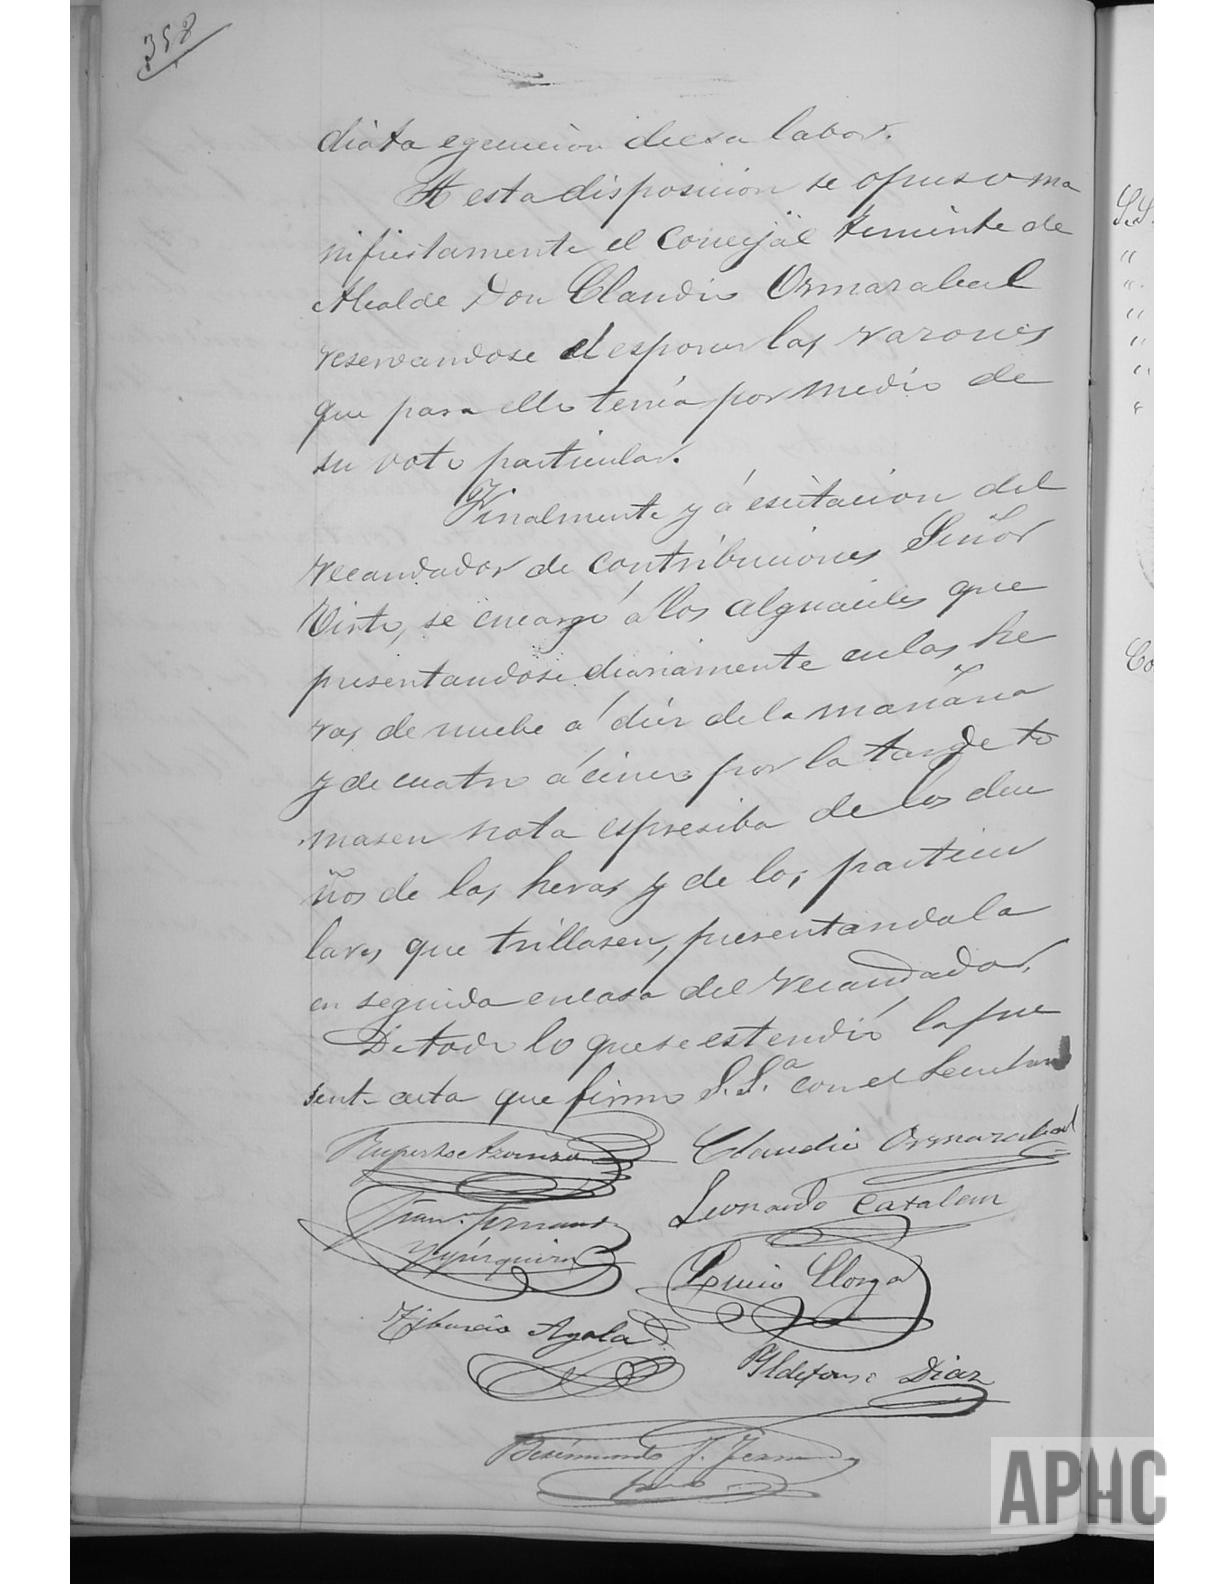 358
diata egecucion de esa labor.
A esta disposicion se opuso ma
nifiestamente el concejal teniente de
Alcalde Don Claudio Ormazabal
reservandose el esponer las razones
que para ello tenía por medio de
su voto particular.
Finalmente y á escitacion del
recaudador de contribuciones Señor
Virto, se encargó á los alguaciles que
presentandose diariamente en las he
ras de nuebe á diez de la mañana
y de cuatro á cinco por la tarde to
masen nota espresiba de los due
ños de las heras y de los particu
lares que trillasen, presentandola
en seguida en casa del recaudador.
De todo lo que se estendió la pre
sente acta que firma S.S.ª con el Secretario
Ruperto Claudio Ormazabal
Leonardo Catalan
Lucio Llorza
Tiburcio Ayala
Yldefonso Diaz
APHC
S.S.
"
"
"
"
"
"
Co